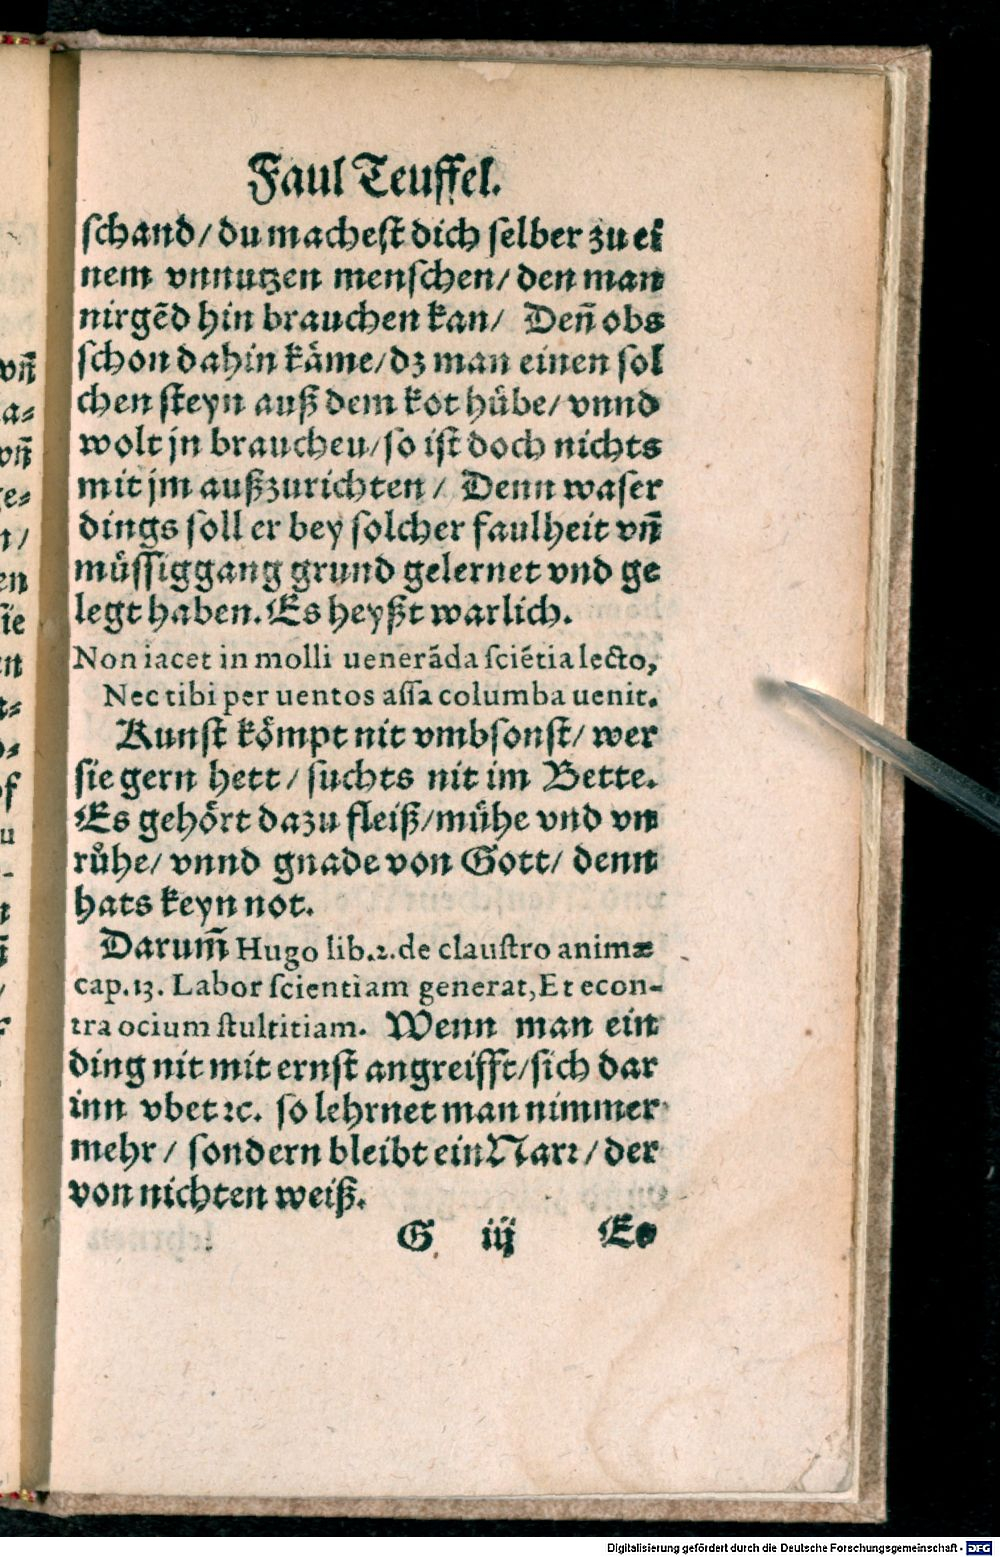 Faul Teuffel.
schand/ du machest dich selber zu ei
nem vnnutzen menschen/ den man
nirgẽd hin brauchen kan/ Deñ obs
schon dahin kåme/ dz man einen sol
chen steyn auß dem kot hůbe/ vnnd
wolt jn braucheu/ so ist doch nichts
mit jm außzurichten/ Denn waser
dings soll er bey solcher faulheit vñ
můssiggang grund gelernet vnd ge
legt haben. Es heyßt warlich.
Non iacet in molli uenerãda sciẽtia lecto,
Nec tibi per uentos assa columba uenit.
Kunst kőmpt nit vmbsonst/ wer
sie gern hett/ suchts nit im Bette.
Es gehőrt dazu fleiß/ můhe vnd vn
růhe/ vnnd gnade von Gott/ denn
hats keyn not.
Darum̃ Hugo lib.2. de claustro animæ
cap.13. Labor scientiam generat, Et econ-
tra ocium stultitiam. Wenn man ein
ding nit mit ernst angreifft/ sich dar
inn vbet ꝛc. so lehrnet man nimmer
mehr/ sondern bleibt ein Narꝛ/ der
von nichten weiß.
G iij Es
vñ
a⸗
vñ
ge⸗
n/
en
sie
en
t⸗
u
Digitalisierung gefördert durch die Deutsche Forschungsgemeinschaft - DFG